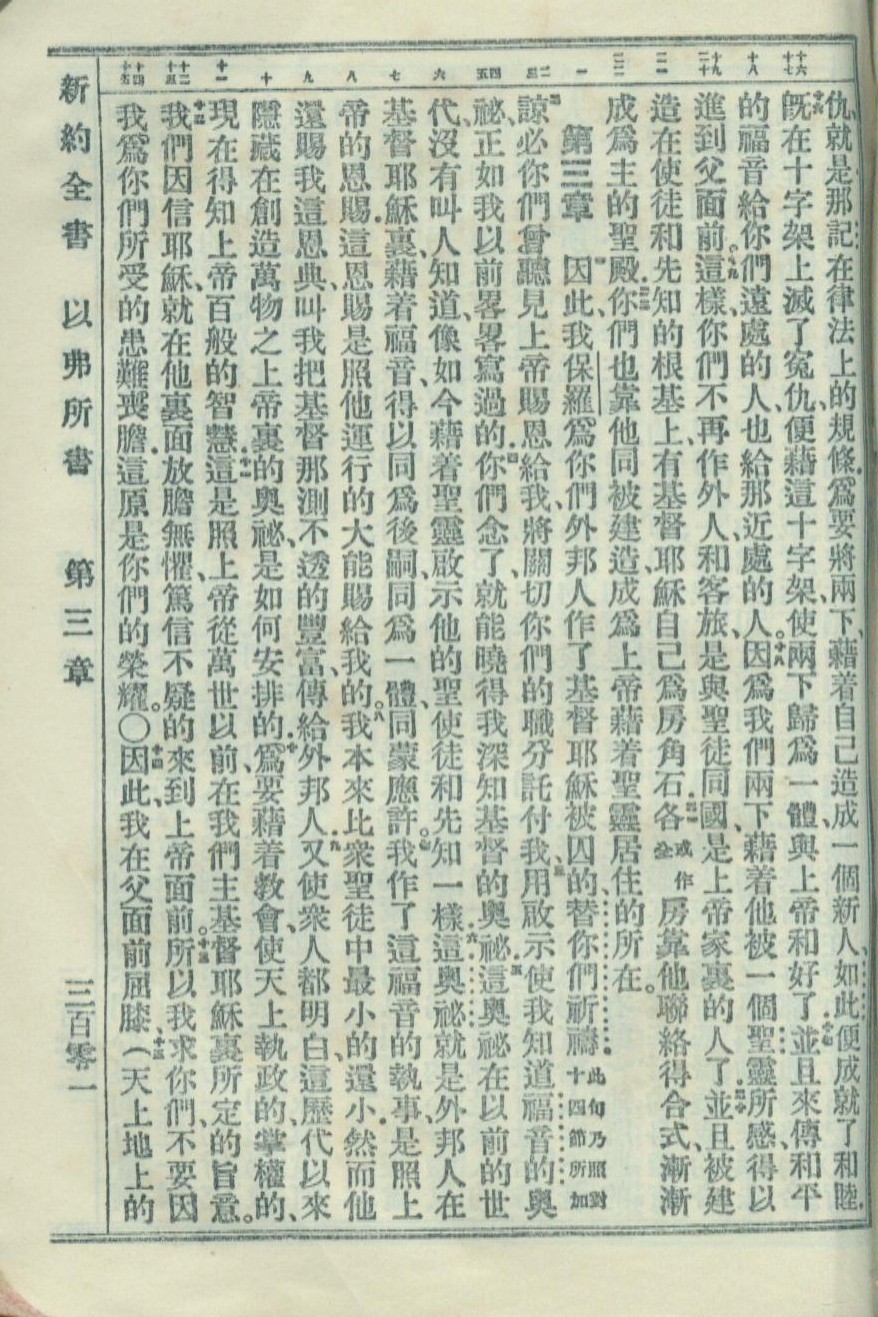 仇、就是那記在律法上的規條、爲要將兩下、藉着自己造成一個新人、如此便成就了和睦、
十六既在十字架上滅了寃仇、便藉這十字架、使兩下歸爲一體、與上帝和好了、十七並且來傳和平
的福音給你們遠處的人、也給那近處的人。十八因爲我們兩下藉着他被一個聖靈所感得以
進到父面前。十九這樣你們不再作外人、和客旅、是與聖徒同國、是上帝家裏的人了、二十並且被建
造在使徒和先知的根基上、有基督耶穌自己爲房角石、二一各或作全房靠他聯絡得合式、漸漸
成爲主的聖殿、二二你們也靠他同被建造成爲上帝藉着聖靈居住的所在。
第三章 一因此、我保羅爲你們外邦人作了基督耶穌被囚的、替你們祈禱、此句乃照對十四節所加
二諒必你們曾聽見上帝賜恩給我、將關切你們的職分託付我、三用啟示使我知道福音的奧
祕、正如我以前畧畧寫過的、四你們念了、就能曉得我深知基督的奧祕、五這奧祕在以前的世
代、沒有叫人知道、像如今藉着聖靈啟示他的聖使徒和先知一樣、六這奧祕就是外邦人在
基督耶穌裏、藉着福音、得以同爲後嗣、同爲一體、同蒙應許。七我作了這福音的執事、是照上
帝的恩賜、這恩賜是照他運行的大能賜給我的。八我本來比衆聖徒中最小的還小、然而他
還賜我這恩典、叫我把基督那測不透的豐富、傳給外邦人、九又使衆人都明白、這歷代以來
隱藏在創造萬物之上帝裏的奧祕、是如何安排的、十爲要藉着教會、使天上執政的、掌權的、
現在得知上帝百般的智慧、十一這是照上帝從萬世以前、在我們主基督耶穌裏所定的旨意。
十二我們因信耶穌、就在他裏面放膽無懼、篤信不疑的來到上帝面前。十三所以我求你們、不要因
我爲你們所受的患難喪膽、這原是你們的榮耀。〇十四因此、我在父面前屈膝、十五（天上地上的
新約全書 以弗所書 第三章 三百零一